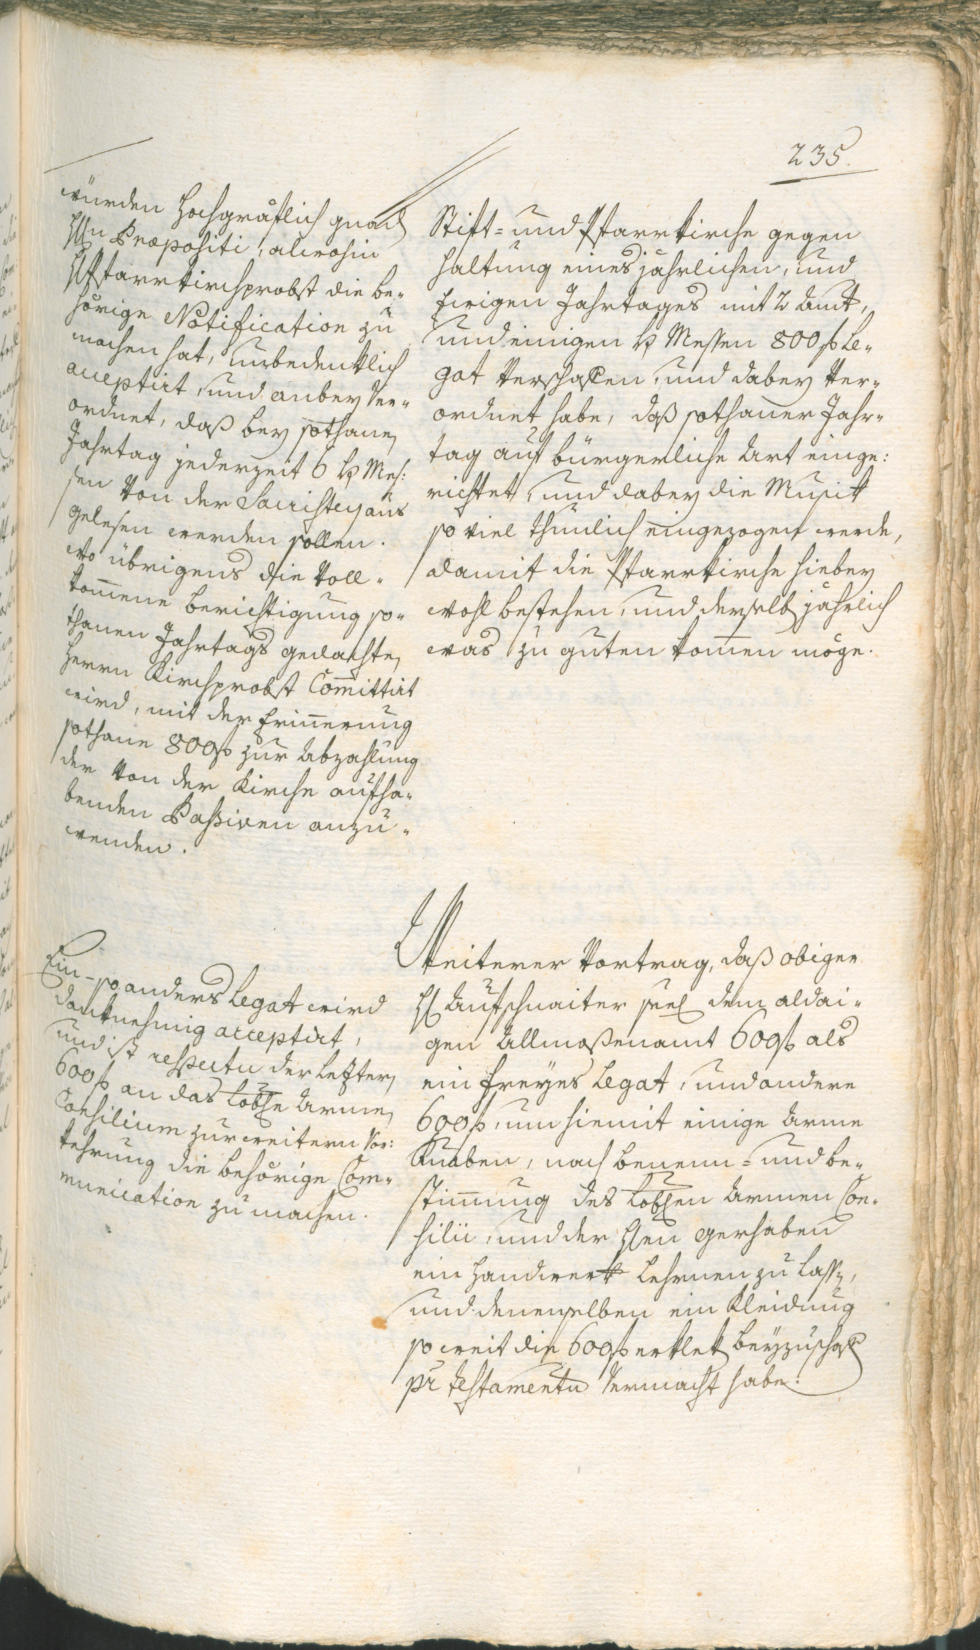 235.
würden Hochgräflich gnad
H\[er\]n Præpositi, alwohin
H Pfarrkirchprobst die be-
hörige Notification zu
machen hat, unbedenklich
acceptirt, und anbey ver-
ordnet, daß bey sothanen
Jahrtag jederzeit 6 h Mes:
sen von der Sacristey aus
gelesen werden sollen.
Wo übrigens die voll-
kom̄ene berichtigung so-
thanen Jahrtags gedachten
Herrn Kirchprobst Com̄ittirt
wird, mit der Erin̄erung
sothane 800 f zur abzahlung
der von der Kirche aufha-
benden Passiven anzu-
wenden.
Stift- und Pfarrkirche gegen
haltung eines jährlichen, und
ewigen Jahrtages mit 2 Amt,
und einigen h Messen 800 f Le-
gat verschaffen, und dabey ver-
ordnet habe, daß sothaner Jahr-
tag auf bürgerliche Art einge:
richtet, und dabey die Musik
so viel thunlich eingezogen werde,
damit die Pfarrkirche hiebey
wohl bestehen, und derselb jährlich
was zu guten kom̄en möge.
Ein- so anders Legat wird
danknehmig acceptirt,
und ist respectu der Letztern
600 f an das Lobse Armen
Consilium zur weitern Vor:
kehrung die behörige Com-
munication zu machen.
Weiterer Vortrag, daß obiger
H Aufschnaiter seel dem aldai-
gen Allmoßenamt 600 f als
ein freyes Legat, und andere
600 f, um hiemit einige Arme
Knaben, nach benenn- und be-
stim̄ung des Lobsen Armen Con-
silii, und der H\[er\]en gerhaben
ein Handwerk Lehrnen zu Lassen,
und denenselben ein Kleidung
so weit die 600 f erklekt beyzuschaffen
pr testamentu vermacht habe.